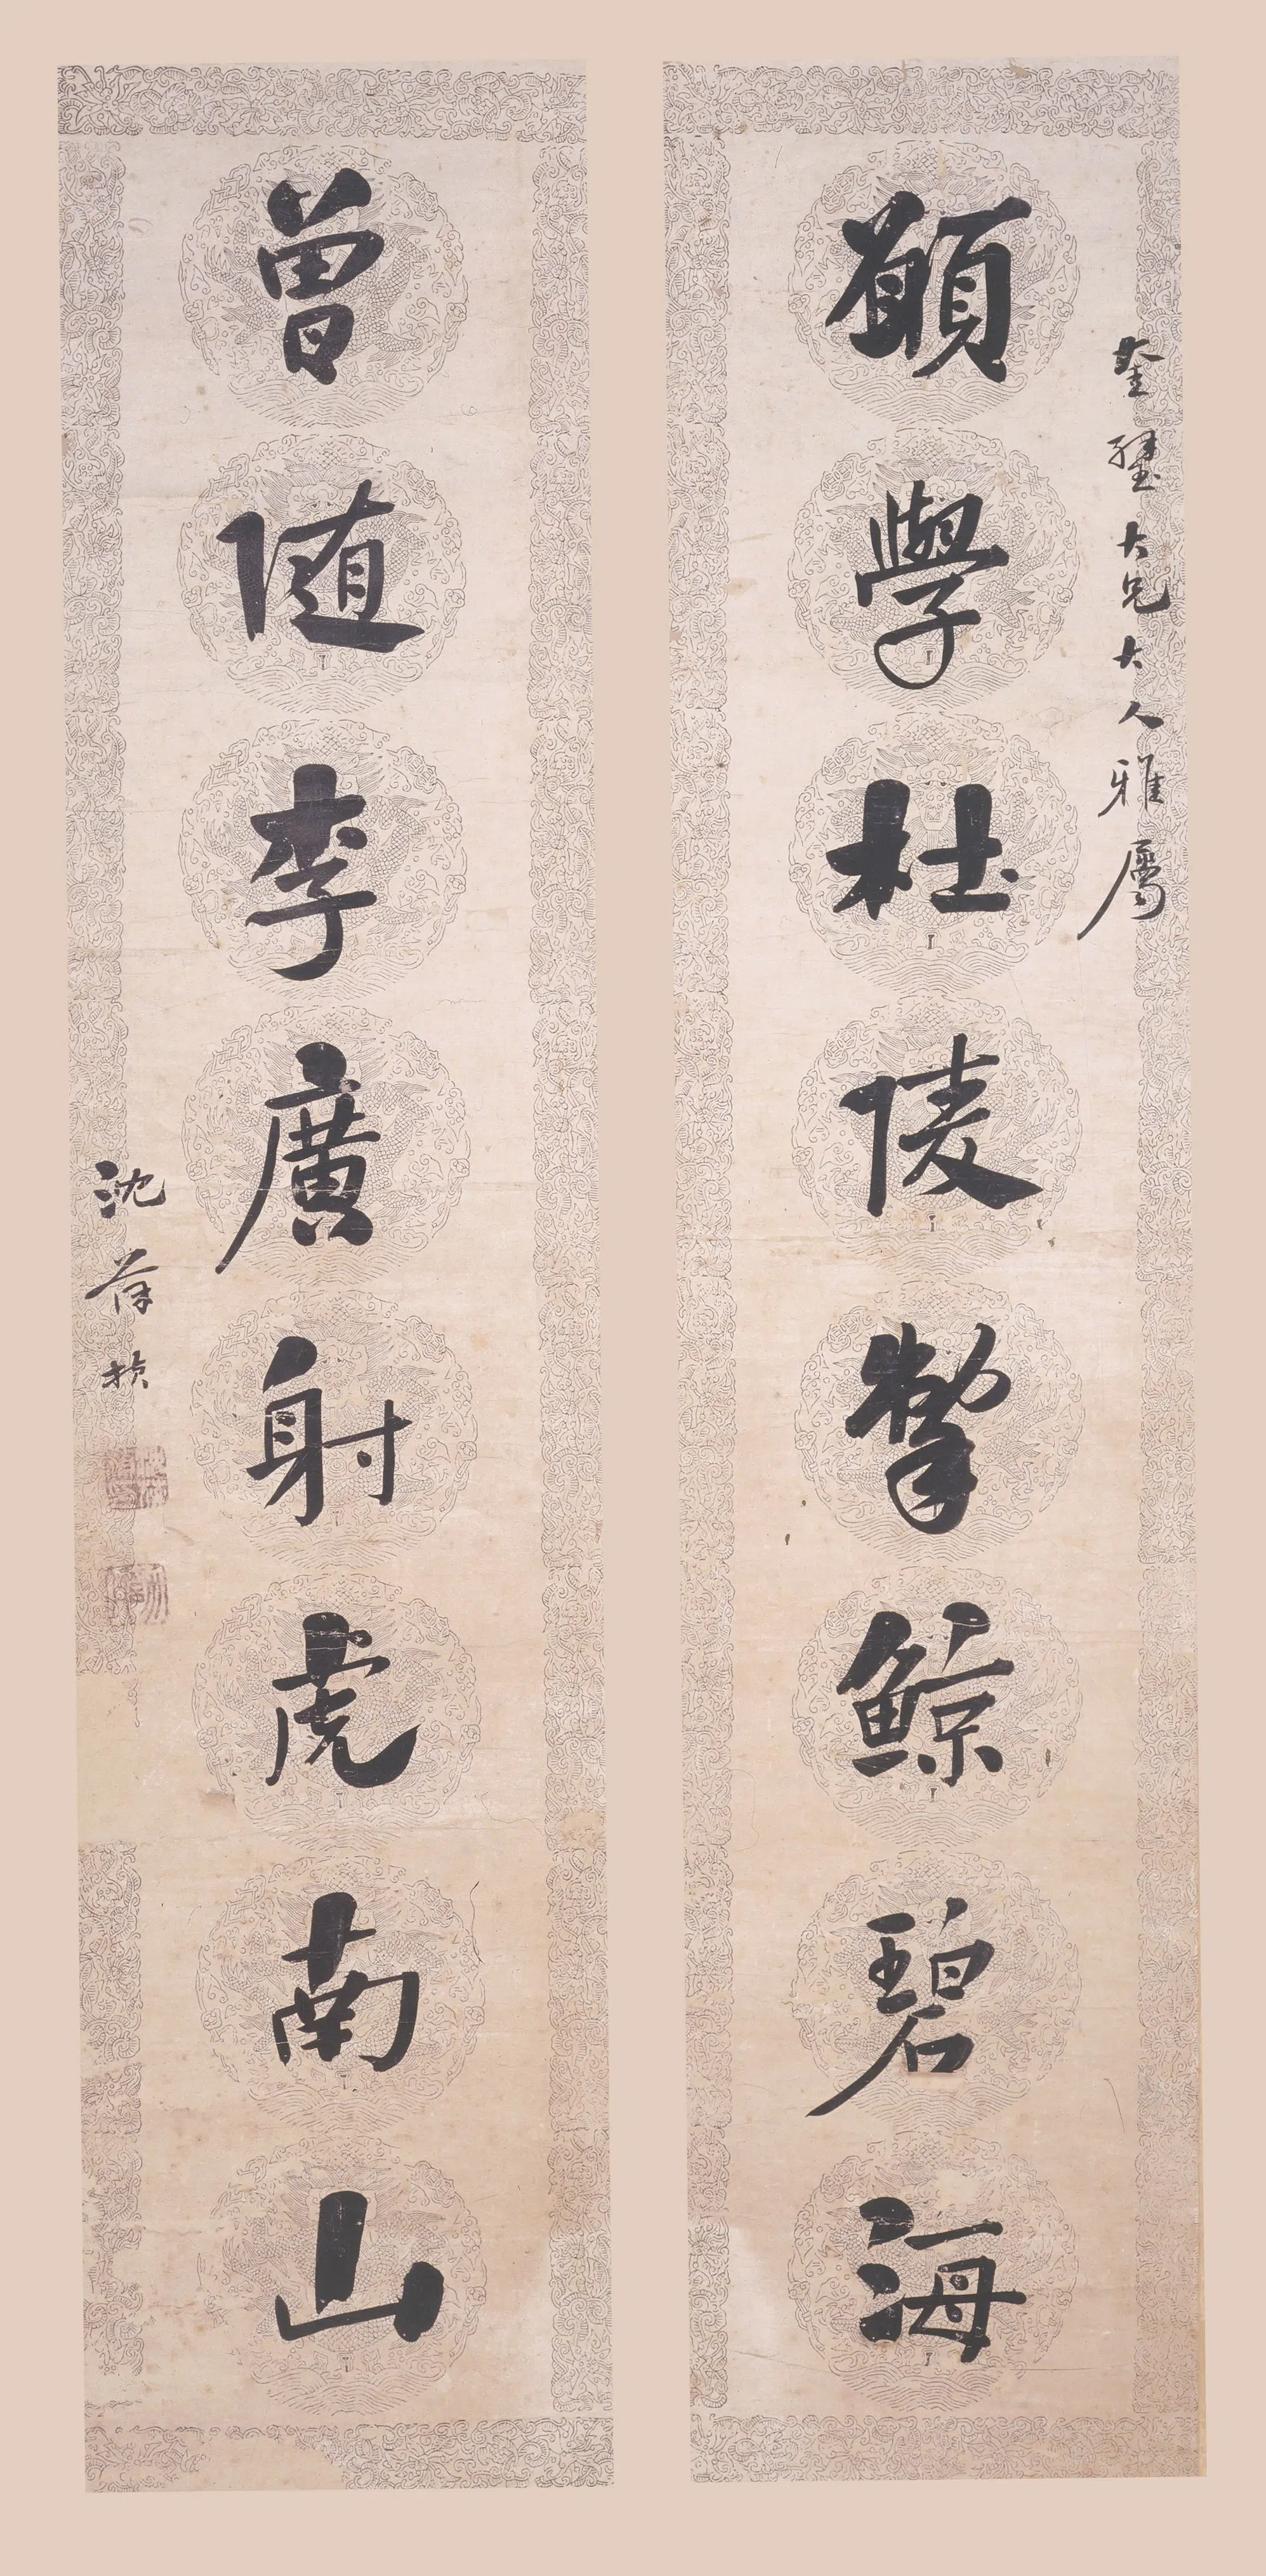 奎璧大兄大人雅屬
願學杜陵掣鯨碧海
曾随李廣射虎南山
沈葆楨